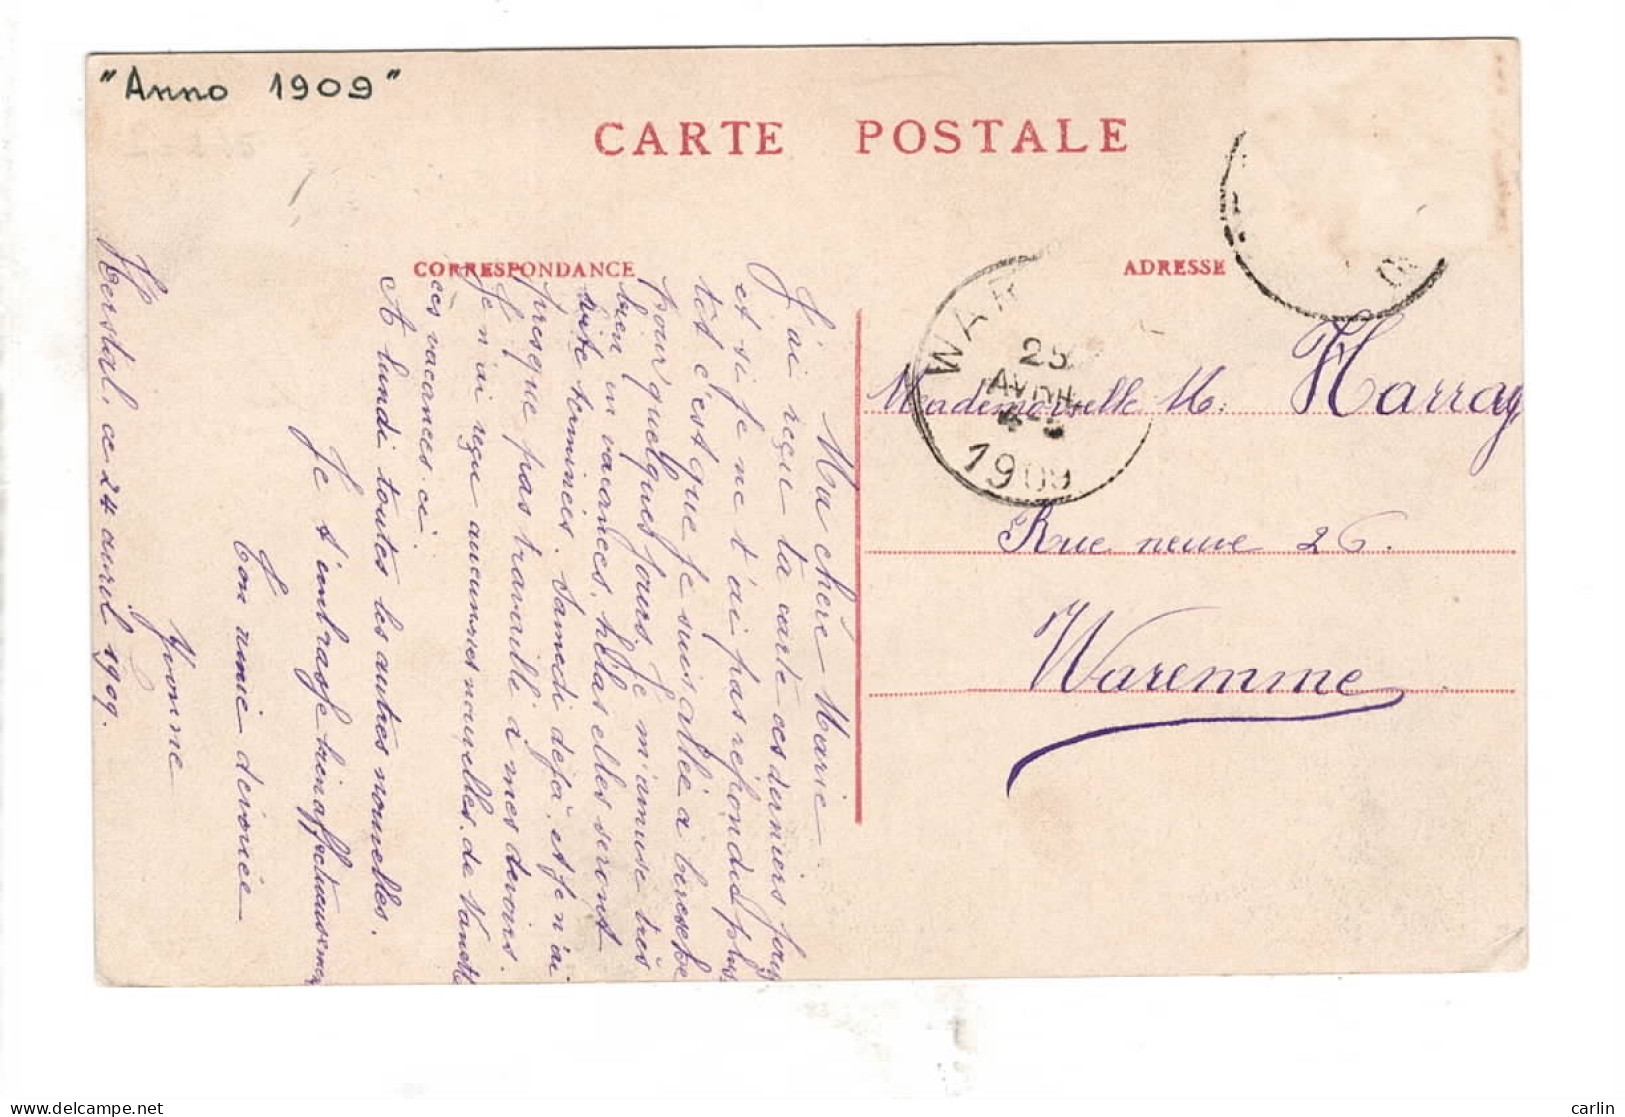 "Anno 1909"
CARTE POSTALE
CORRESPONDANCE
ADRESSE
WAR
25
AVRIL
1909
Mademoiselle M. Harray
Rue neuve 26.
Waremme
Ma chère Marie
J'ai reçu ta carte ces derniers jours
et si je ne t'ai pas répondu plus
tôt c'est que je suis allée à
pour quelques jours. Je m'amuse très
bien en vacances, hélas elles seront
vite terminées. Samedi déjà, et je n'ai
presque pas travaillé à mes devoirs.
Je n'ai reçue aucunes nouvelles de
ces vacances-ci.
A lundi toutes les autres nouvelles.
Je t'embrasse bien affectueusement
Ton amie dévouée
Yvonne
Herstal, ce 24 avril 1909.
carlin